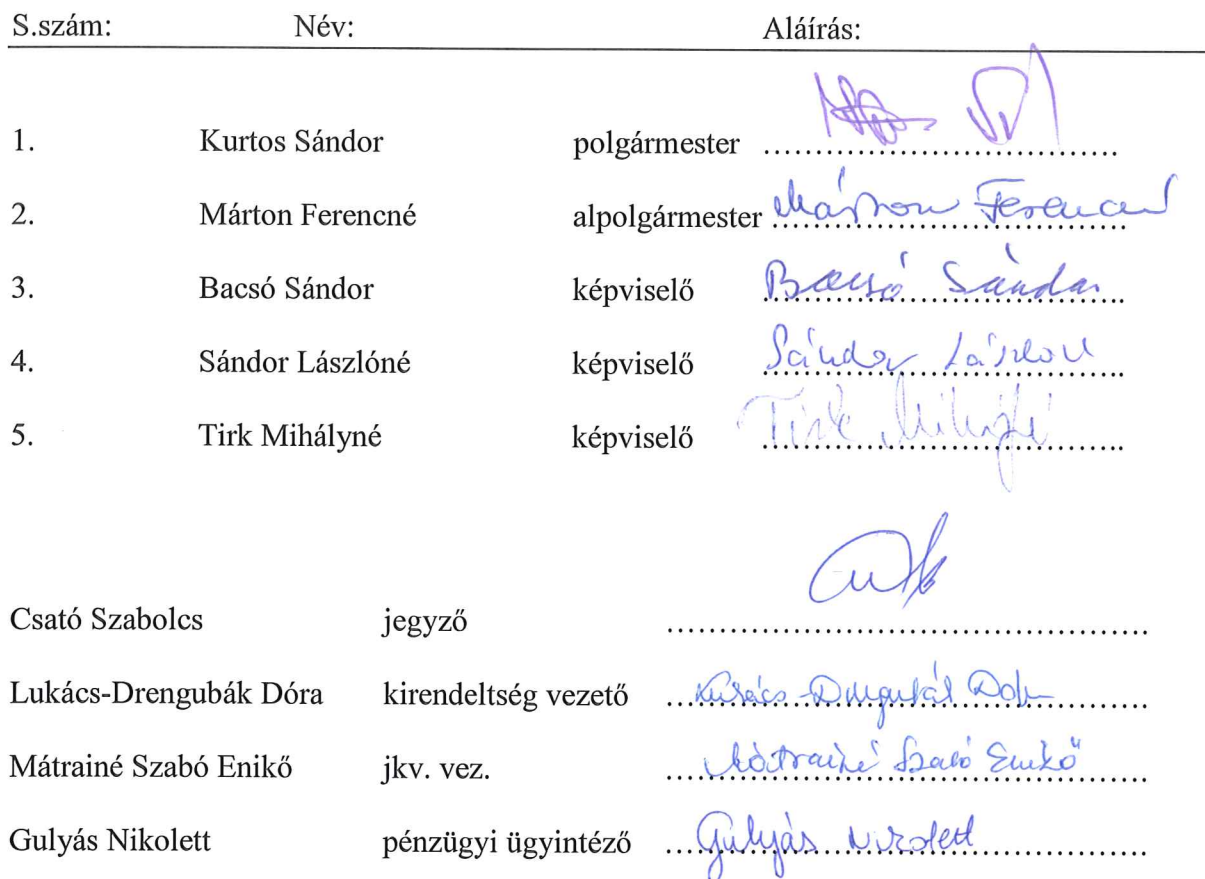 S.szám: Név: Aláírás:
1. Kurtos Sándor polgármester
2. Márton Ferencné alpolgármester Márton Ferencné
3. Bacsó Sándor képviselő Bacsó Sándor
4. Sándor Lászlóné képviselő Sándor Lászlóné
5. Tirk Mihályné képviselő Tirk Mihályné
Csató Szabolcs jegyző
Lukács-Drengubák Dóra kirendeltség vezető Lukács-Drengubák Dóra
Mátrainé Szabó Enikő jkv. vez. Mátrainé Szabó Enikő
Gulyás Nikolett pénzügyi ügyintéző Gulyás Nikolett